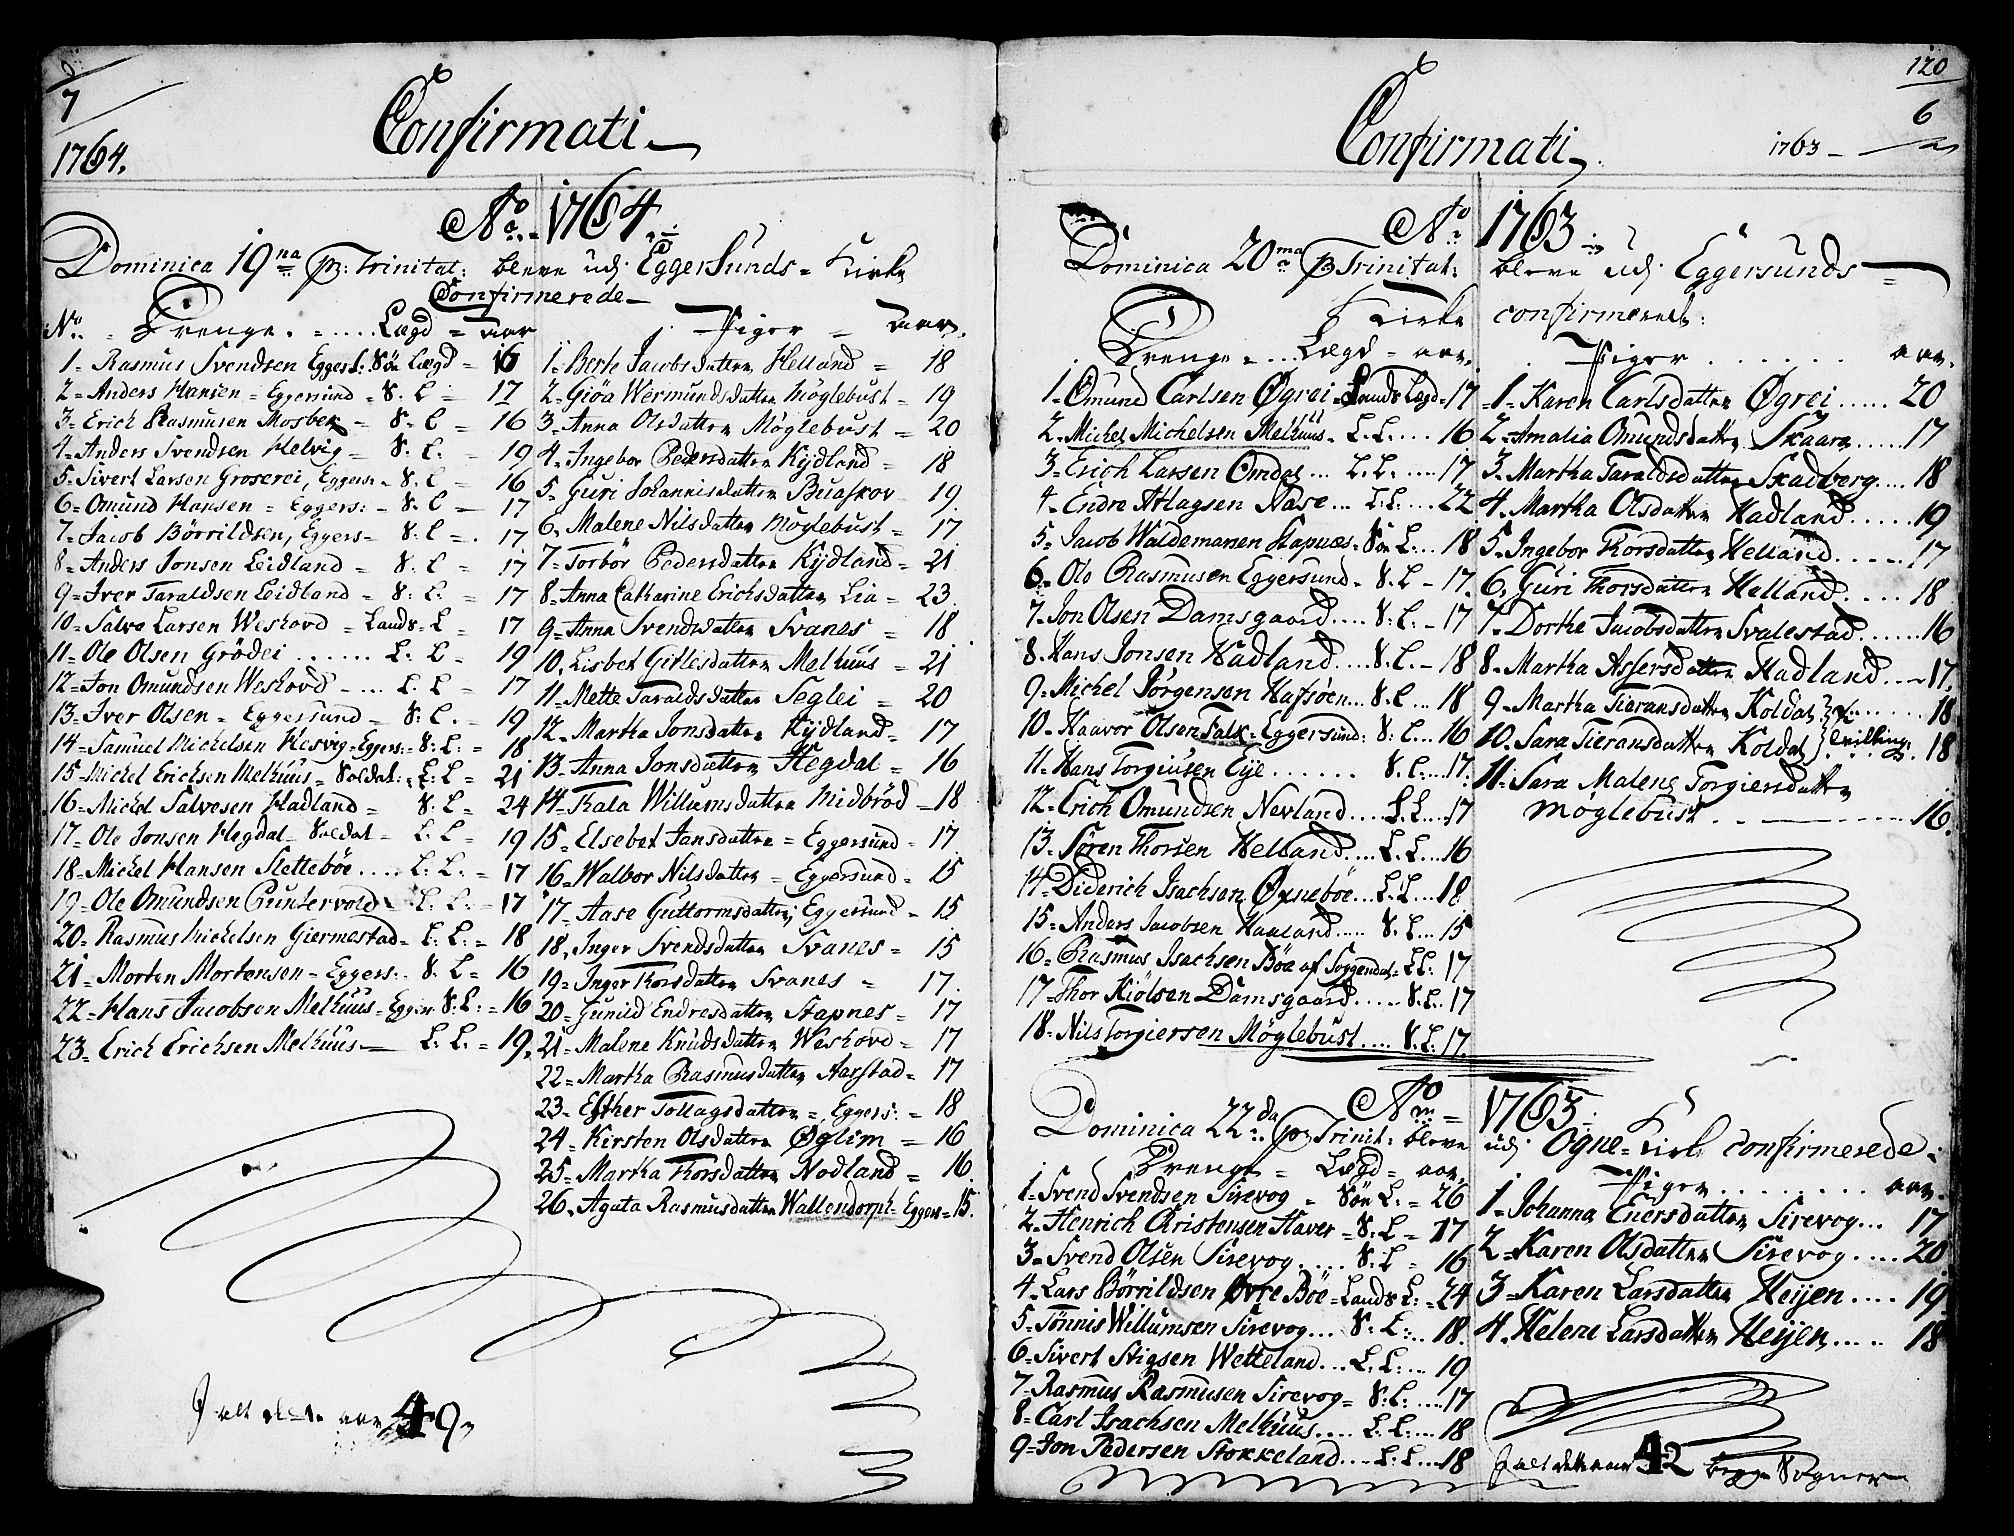 7
1764.
Confirmati
No. 1764.
Dominica 19na p: Trinitat: bleve udj EggerSunds = Kirke
Confirmerede
No. = Drenge. = ..... Lægd = aar
1 = Rasmus Svendsen Eggers: Söe Lægd = 16
2 = Anders Hansen = Eggersund = S. L = 17
3 = Erich Rasmusen Mosbek = S. L = 16
4 = Anders Svendsen Helvig = S. L. = 19
5 = Sivert Larsen Groserei, Eggers: = S. L = 16
6 = Omund Hansen = Eggers: = S. L = 17
7 = Jacob Börrildsen, Eggers = S. L = 17
8 = Anders Jonsen Leidland = S. L = 17
9 = Iver Taraldsen Leidland = S. L. = 17
10 = Salve Larsen Weshovd = Lands = L = 17
11 = Ole Olsen Grödei ...... L. L = 19
12 = Jon Omundsen Weshovd .... L. L = 17
13 = Iver Olsen = Eggersund = S. L. = 19
14 = Samuel Michelsen Hesvig = Eggers: = S. L: = 18
15 = Michel Erichsen Melhuus = Soldat: L. L = 21
16 = Michel Salvesen Hadland = S. L = 24
17 = Ole Jonsen Hegdal = Soldat = L. L = 19
18 = Michel Hansen Slettebøe .... L. L. = 17
19 = Ole Omundsen Puntervold = L. L. = 17
20 = Rasmus Michelsen Giermestad = L. L. = 18
21 = Morten Mortensen = Eggers: S. L = 16
22 = Hans Jacobsen Melhuus = Egger: S. L: = 16
23 = Erich Erichsen Melhuus — L. L. = 19.
Piger = aar.
1 = Berte Jacobsdatter Helland = 18
2 = Giöa Wermundsdatter Möglebust = 19
3 = Anna Olsdatter Möglebust = 20
4 = Ingebor Pedersdatter Kijdland = 18
5 = Guri Johannisdatter Buaskov = 19.
6 = Malene Nilsdatter Möglebust = 17
7 = Torbör Pedersdatter Kijdland = 21
8 = Anna Catharine Erichsdatter Lia = 23
9 = Anna Svendsdatter Svanes = 18
10. Lisbet Gitlesdatter Melhuus = 21
11 = Mette Taraldsdatter Seglei = 20
12. Martha Jonsdatter Kijdland = 17
13 = Anna Jonsdatter Hegdal = 16
14 = Kala Willumsdatter Midbröd = 18
15 = Elsebet Jansdatter = Eggersund = 17
16 = Walbor Nilsdatter = Eggersund = 15
17 = Aase Guttormsdatter; Eggersund = 15
18. Inger Svendsdatter Svanes = 15
19 = Inger Thorsdatter Svanes = 17.
20 = Gunild Endresdatter Stapnes = 17
21 = Malene Knudsdatter Weshovd = 17
22 = Martha Rasmusdatter Aarstad = 17
23 = Esther Tollagsdatter = Eggers: = 18
24 = Kirsten Olsdatter Øglim = 16
25 = Martha Thorsdatter Nodland = 16.
26. Agata Rasmusdatter Wallendorph = Eggers = 15.
I alt dette aar 49
120
6
Confirmati
1763
No 1763
Dominica 20ma p Trinitat: bleve udj Eggersunds =
Kirke confirmeret:
Drenge = ... Lægd = aar.
1. Omund Carlsen Øgrei = Lands Lægd = 17
2. Michel Michelsen Melhuus = L. L. ... 16
3 = Erich Larsen Omdal ... L. L. ... 17
4 = Endre Atlagsen Aase ... L. L. ... 22
5 = Jacob Waldemarsen Stapnæs = Söe L. ... 18
6 = Ole Rasmusen Eggersund = S. L = 17.
7 = Jon Olsen Damsgaard ... S. L. = 17
8. Hans Jonsen Hadland ... S. L. = 18
9 = Michel Jörgensen Hafsöen S. L ... 18
10 = Haavor Olsen Falk = Eggersund: S. L ... 16
11 = Hans Torgiusen Eije ...... S. L. ... 17.
12 = Erich Omundsen Nevland .... L. L ... 17
13 = Sören Thorsen Helland .... L. L ... 16
14 = Diderich Isachsen Øxneböe ... L. L ... 18
15 = Anders Jacobsen Haaland .... S. L ... 15
16 = Rasmus Isachsen Böe af Soggendal = L L: 17
17 = Thor Kiölsen Damsgaard .... S. L. 17
18 = Nils Torgiersen Möglebust .... S. L: 17.
Piger ...... aar.
1 = Karen Carlsdatter Øgrei ..... 20
2 = Amalia Omundsdatter Skaara .... 17
3. Martha Taraldsdatter Skadberg ... 18
4. Martha Olsdatter Hadland ..... 19
5. Ingebor Thorsdatter Helland ..... 17
6. Guri Thorsdatter Helland .... 18
7. Dorthe Jacobsdatter Svalestad ..... 16
8 = Martha Assersdatter Hadland ... 17.
9 = Martha Tieransdatter Koldal ...... 18
10. Sara Tieransdatter Koldal } tvilling: 18
11 = Sara Malene Torgiersdatter
Moglebust ....... 16.
No 1763 =
Dominica 22da p Trinit: bleve udj Ogne = Kirke confirmerede.
Drenge = Lægd = aar
1 = Svend Svendsen Sirevog = Söe L. = 26
2. Henrich Christensen Haver = S. L = 17
3 = Svend Olsen Sirevog .... S. L = 16
4 = Lars Börrildsen Øvre Böe = Lands L: = 24
5 = Tönnis Willumsen Sirevog ... S. L: .. 18.
6 = Sivert Stigsen Wetteland ... L. L: ... 19
7 = Rasmus Rasmusen Sirevog = S: L: .... 17
8 = Carl Isachsen Melhuus .... L. L: .... 18
9 = Jon Pedersen Stokkeland .... L. L .... 18
Piger ........ aar.
1 = Johanna Enersdatter Sirevog ... 17
2 = Karen Olsdatter Sirevog .... 20
3 = Karen Larsdatter Heijen .... 19
4. Helene Larsdatter Heijen .... 18
I alt dette aar 42 begge Sogner